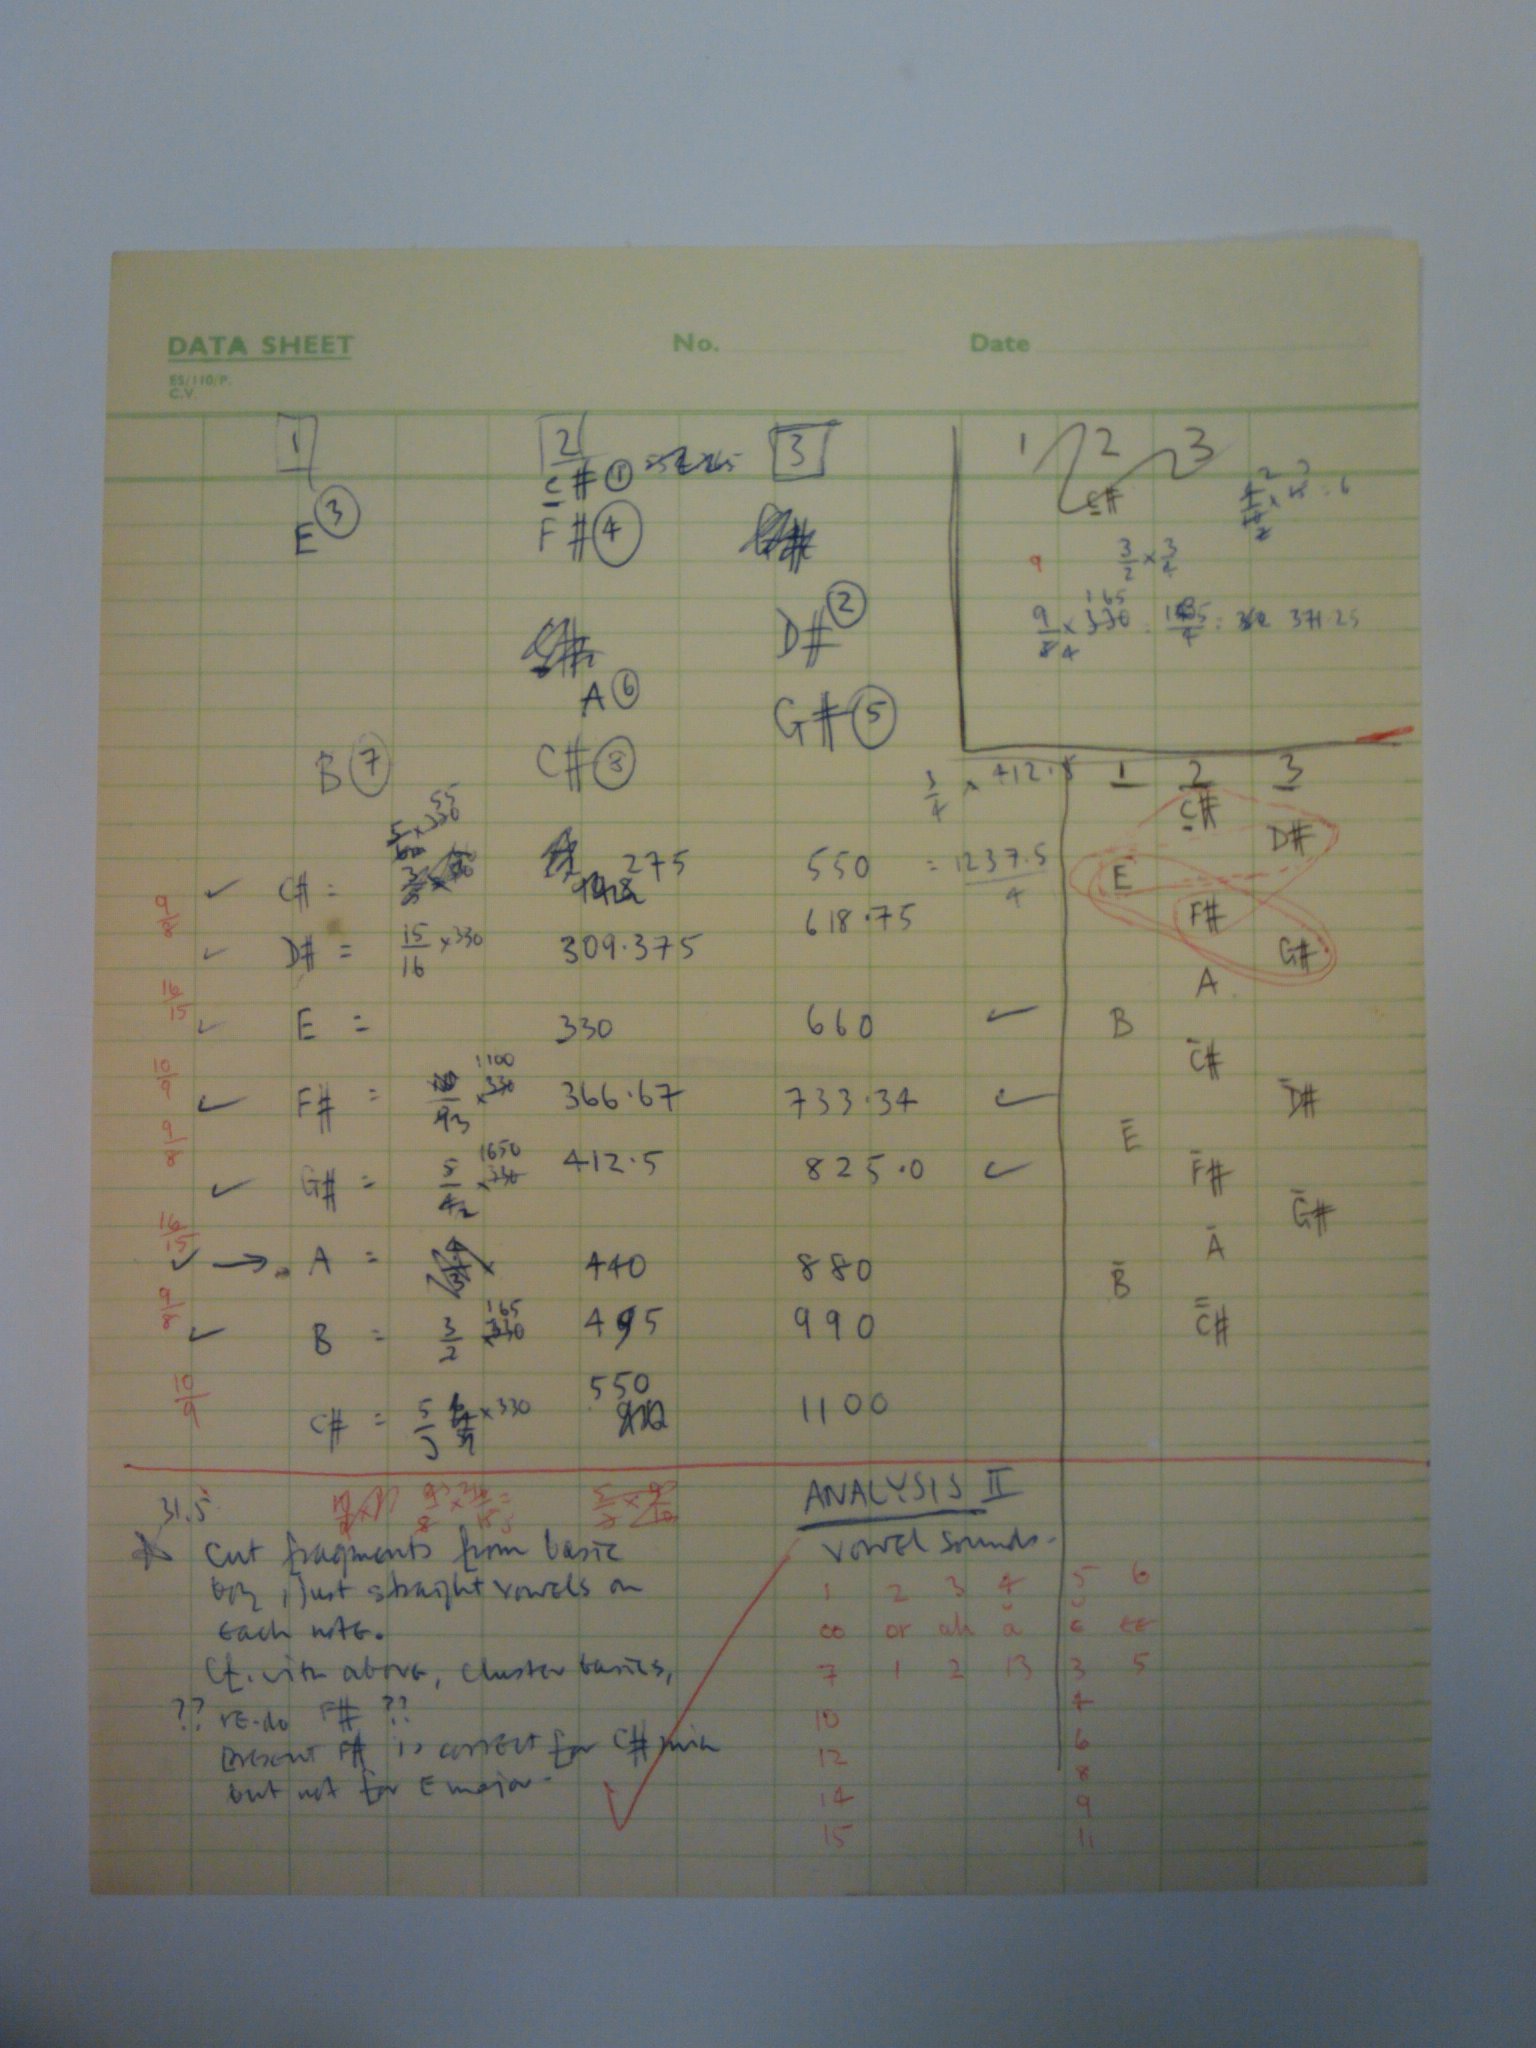 DATA SHEET No. Date
ES/110/P.
C.V.
1 2 3
C# 1
E 3 F# 4
D# 2
A 6
G# 5
B 7 C# 8
1 2 3
C#
9 3/2 × 3/4
165
9/8 × 330 = 371.25
4
3/4 × 412.5
= 1237.5/4
5/6 × 330 55
✓ C# = 275 550
9/8
✓ D# = 15/16 × 330 309.375 618.75
16/15
✓ E = 330 660 ✓
10/9
1100
✓ F# = × 330 366.67 733.34 ✓
9/8
1650
✓ G# = 5/4 × 330 412.5 825.0 ✓
16/15
✓ → A = × 440 880
9/8
165
✓ B = 3/2 × 330 495 990
10/9
C# = 5/3 × 330 550 1100
1 2 3
C#
D#
E
F#
G#
A
B
C#
D#
E
F#
G#
A
B
C#
31.5
Cut fragments from basic
, just straight vowels on
each note.
Cf. with above, cluster basics,
?? re-do F# ??
Present F# is correct for C# min
but not for E major.
ANALYSIS II
Vowel sounds.
1 2 3 4 5 6
oo or ah a e ee
7 1 2 13 3 5
10 4
12 6
8
14 9
15 11